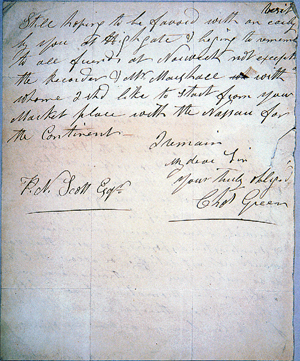 Still hoping to be favord with an early
by you at Highgate & hoping to remain
to all friends at Norwich not except
the Recorder & Mr Marshall with
whome I shd like to Start from your
Market place with the Nassau for
the Continent
I remain
my dear Sir
Your truly obliged
Chas Green
F. N. Scott Esqr